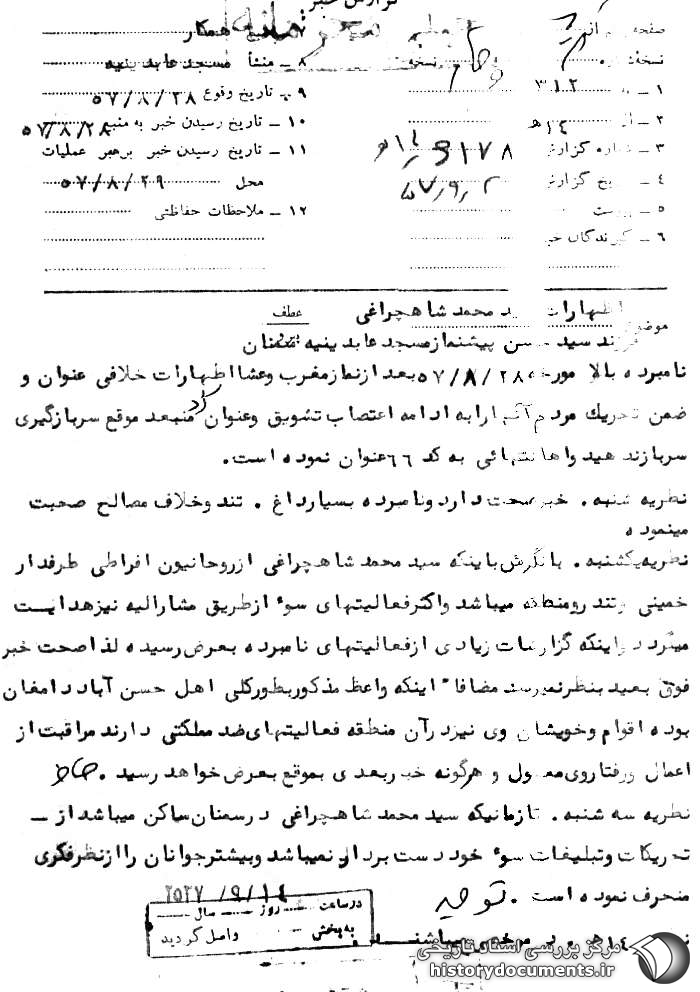 گزارش خبر
صفحه
نسخه شماره
۱ ـ ۳۱۲
۲ ـ از ۱۴ ه‍
۳ ـ شماره گزارش ۱۴ ه‍ / ۳۱۷۸
۴ ـ تاریخ گزارش ۵۷/۹/۲
۵ ـ پیوست
۶ ـ گیرندگان خبر
۷ ـ منبع همکار
۸ ـ منشأ مسجد عابدینیه
۹ ـ تاریخ وقوع ۵۷/۸/۲۸
۱۰ ـ تاریخ رسیدن خبر به منبع ۵۷/۸/۲۸
۱۱ ـ تاریخ رسیدن خبر برهبر عملیات
محل ۵۷/۸/۲۹
۱۲ ـ ملاحظات حفاظتی
موضوع اظهارات سید محمد شاهچراغی عطف
فرزند سید حسن پیشنماز مسجد عابدینیه سمنان
نامبرده بالا مورخه ۵۷/۸/۲۸ بعد از نماز مغرب و عشا اظهارات خلافی عنوان و
ضمن تحریك مردم آنها را به ادامه اعتصاب تشویق و عنوان کرد منبعد موقع سربازگیری
سرباز ندهید و اهانتهائی به کد ۶۶ عنوان نموده است.
نظریه شنبه. خبر صحت دارد و نامبرده بسیار داغ. تند و خلاف مصالح صحبت
مینموده
نظریه یکشنبه. با نگرش باینکه سید محمد شاهچراغی از روحانیون افراطی طرفدار
خمینی و تندرو منطقه میباشد و اکثر فعالیتهای سوء از طریق مشارالیه نیز هدایت
میگردد و اینکه گزارشات زیادی از فعالیتهای نامبرده بعرض رسیده لذا صحت خبر
فوق بعید بنظر نمیرسد مضافاً اینکه واعظ مذکور بطور کلی اهل حسن آباد دامغان
بوده اقوام و خویشان وی نیز در آن منطقه فعالیتهای ضد مملکتی دارند مراقبت از
اعمال و رفتار وی معمول و هرگونه خبر بعدی بموقع بعرض خواهد رسید.
نظریه سه شنبه. تا زمانیکه سید محمد شاهچراغی در سمنان ساکن میباشد از ـ
تحریکات و تبلیغات سوء خود دست بردار نمیباشد و بیشتر جوانان را از نظر فکری
منحرف نموده است. توحید
۲۵۳۷/۹/۱۴
در ساعت روز سال
به بخش واصل گردید
۱۴ ه‍
مرکز بررسی اسناد تاریخی
historydocuments.ir